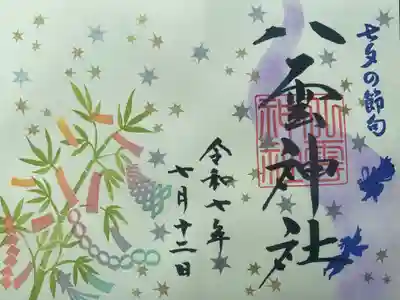 七夕の節句
八雲神社
令和七年
七月十二日